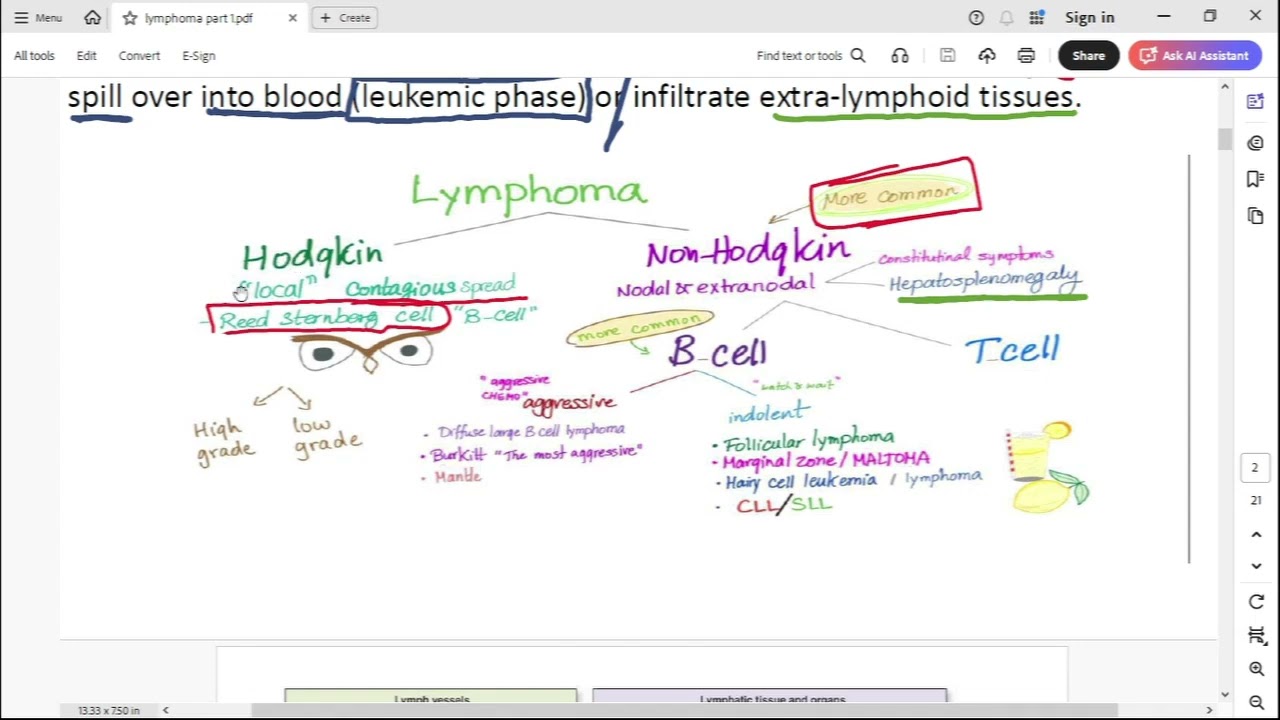 Menu
lymphoma part 1.pdf
Create
Sign in
All tools Edit Convert E-Sign
Find text or tools
Share
Ask AI Assistant
spill over into blood (leukemic phase) or infiltrate extra-lymphoid tissues.
Lymphoma
More common
Hodgkin
"local" Contagious spread
- Reed Sternberg cell "B-cell"
High grade
low grade
Non-Hodgkin
Nodal & extranodal
constitutinal symptoms
Hepatosplenomegaly
more common
B-cell
T cell
"aggressive
CHEMO"
aggressive
• Diffuse large B cell lymphoma
• Burkitt "The most aggressive"
• Mantle
"watch & wait"
indolent
• Follicular lymphoma
• Marginal zone / MALTOMA
• Hairy cell leukemia / lymphoma
• CLL/SLL
2
21
Lymph vessels
Lymphatic tissue and organs
13.33 x 7.50 in